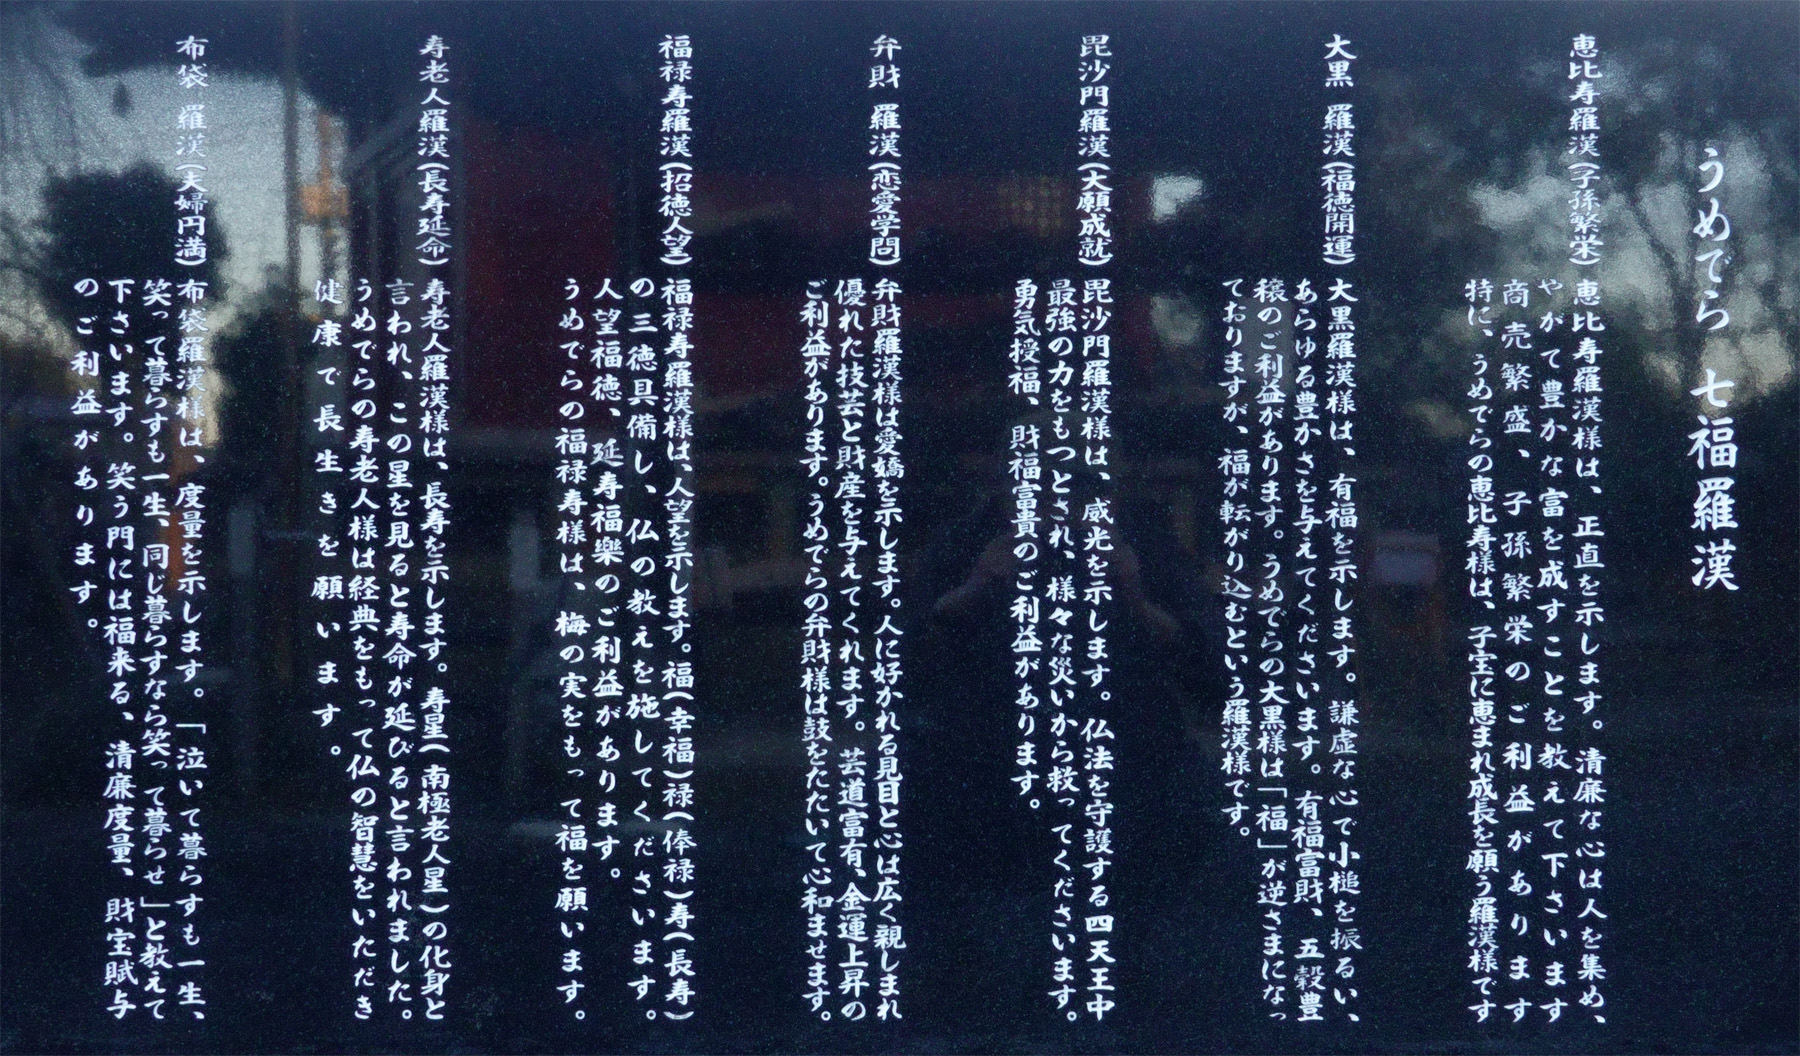 うめでら 七福羅漢
恵比寿羅漢(子孫繁栄)
恵比寿羅漢様は、正直を示します。清廉な心は人を集め、
やがて豊かな富を成すことを教えて下さいます
商売繁盛、子孫繁栄のご利益があります
特に、うめでらの恵比寿様は、子宝に恵まれ成長を願う羅漢様です
大黒 羅漢(福徳開運)
大黒羅漢様は、有福を示します。謙虚な心で小槌を振るい、
あらゆる豊かさを与えてくださいます。有福富財、五穀豊
穣のご利益があります。うめでらの大黒様は「福」が逆さまになっ
ておりますが、福が転がり込むという羅漢様です。
毘沙門羅漢(大願成就)
毘沙門羅漢様は、威光を示します。仏法を守護する四天王中
最強の力をもつとされ、様々な災いから救ってくださいます。
勇気授福、財福富貴のご利益があります。
弁財 羅漢(恋愛学問)
弁財羅漢様は愛嬌を示します。人に好かれる見目と心は広く親しまれ
優れた技芸と財産を与えてくれます。芸道富有、金運上昇の
ご利益があります。うめでらの弁財様は鼓をたたいて心和ませます。
福禄寿羅漢(招徳人望)
福禄寿羅漢様は、人望を示します。福(幸福)禄(俸禄)寿(長寿)
の三徳具備し、仏の教えを施してくださいます。
人望福徳、延寿福樂のご利益があります。
うめでらの福禄寿様は、梅の実をもって福を願います。
寿老人羅漢(長寿延命)
寿老人羅漢様は、長寿を示します。寿星(南極老人星)の化身と
言われ、この星を見ると寿命が延びると言われました。
うめでらの寿老人様は経典をもって仏の智慧をいただき
健康で長生きを願います。
布袋 羅漢(夫婦円満)
布袋羅漢様は、度量を示します。「泣いて暮らすも一生、
笑って暮らすも一生、同じ暮らすなら笑って暮らせ」と教えて
下さいます。笑う門には福来る、清廉度量、財宝賦与
のご利益があります。